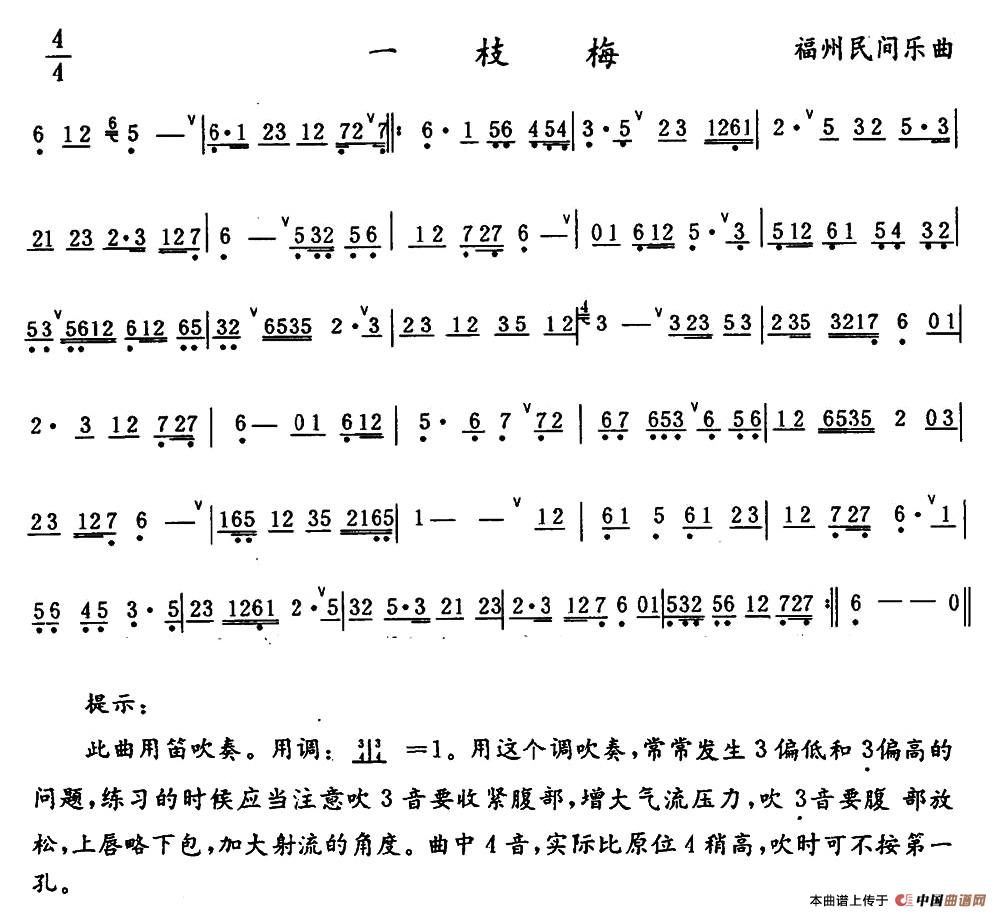 4/4 一 枝 梅 福州民间乐曲
6 12 6 5 — ∨ | 6·1 23 12 72 ∨ 7 ‖: 6· 1 56 454 | 3·5 ∨ 23 1261 | 2· ∨ 5 32 5·3 |
21 23 2·3 127 | 6 — ∨ 532 56 | 12 727 6 — ∨ | 01 612 5· ∨ 3 | 512 61 54 32 |
53 ∨ 5612 612 65 | 32 ∨ 6535 2· ∨ 3 | 23 12 35 12 | 4 3 — ∨ 323 53 | 235 3217 6 01 |
2· 3 12 727 | 6 — 01 612 | 5· 6 7 ∨ 72 | 67 653 ∨ 6 56 | 12 6535 2 03 |
23 127 6 — ∨ | 165 12 35 2165 | 1 — — ∨ 12 | 61 5 61 23 | 12 727 6· ∨ 1 |
56 45 3· 5 | 23 1261 2· ∨ 5 | 32 5·3 21 23 | 2·3 127 6 01 | 532 56 12 727 :‖ 6 — — 0 ‖
提示:
此曲用笛吹奏。用调: =1。用这个调吹奏,常常发生3偏低和3̣偏高的
问题,练习的时候应当注意吹3音要收紧腹部,增大气流压力,吹3̣音要腹 部放
松,上唇略下包,加大射流的角度。曲中4音,实际比原位4稍高,吹时可不按第一
孔。
本曲谱上传于 中国曲谱网